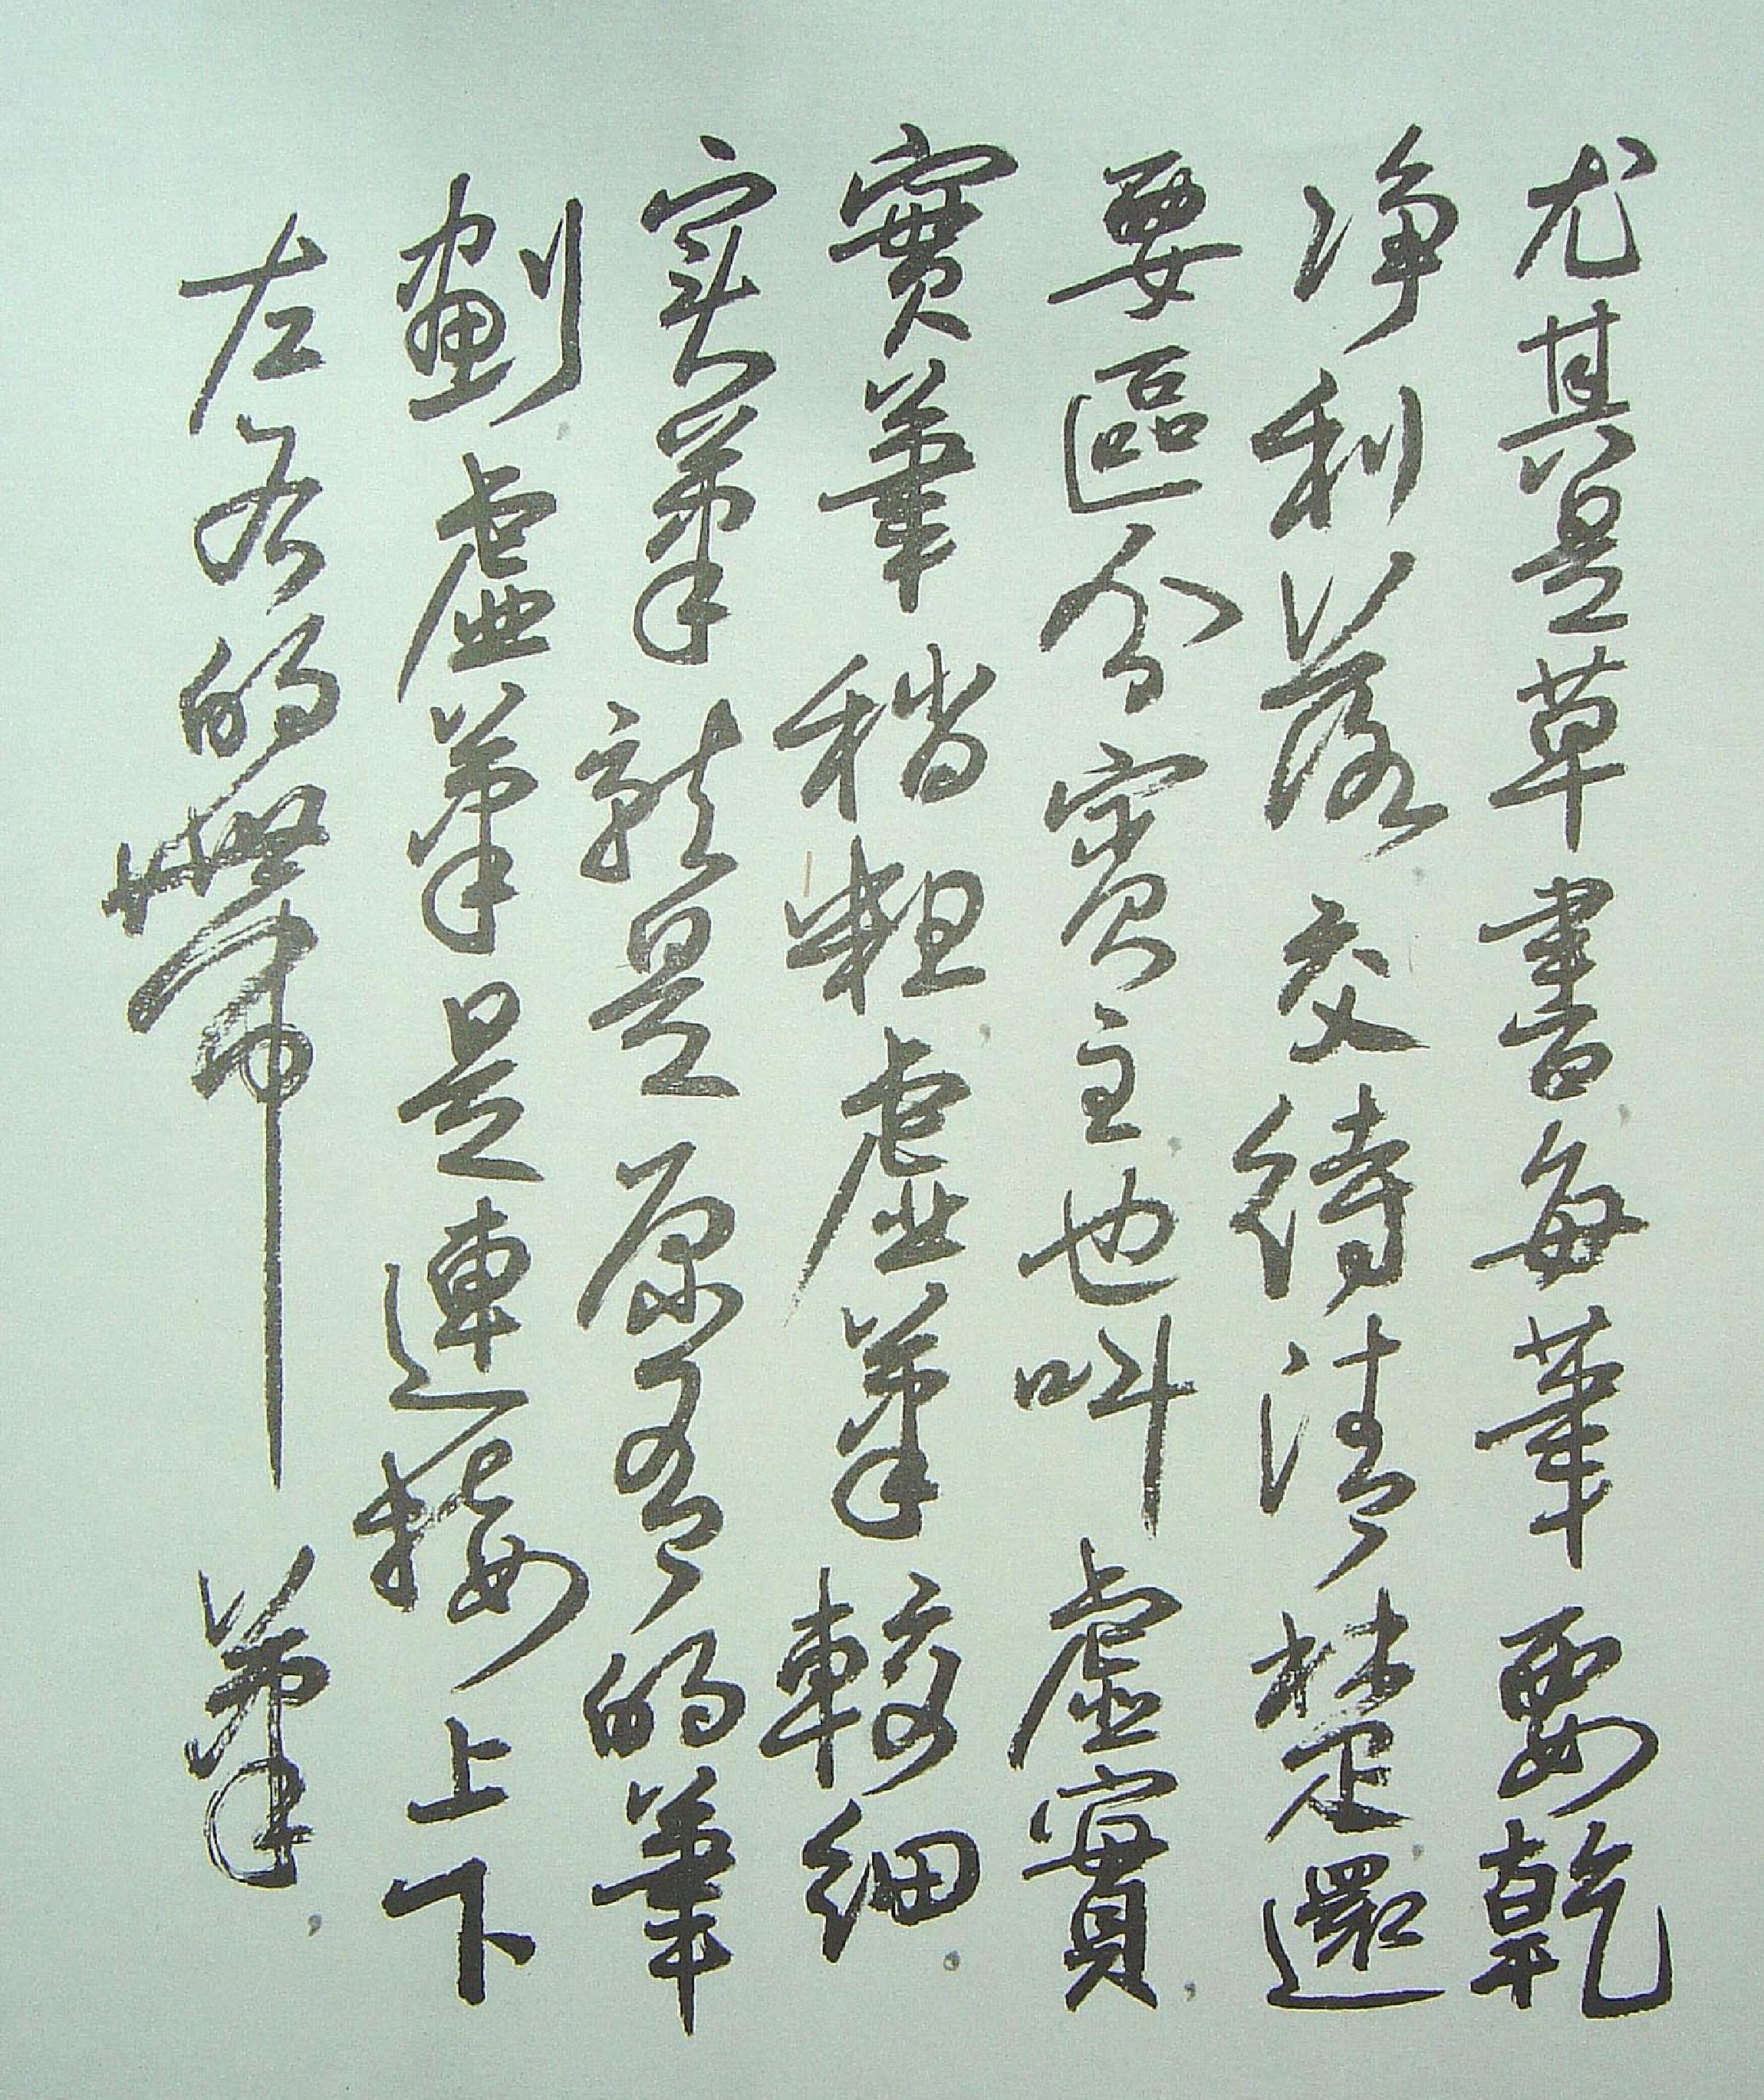 尤其是草書,每筆要乾
净利落,交待清楚,還
要區分賓主,也叫虛實,
實筆稍粗,虛筆較細。
实筆就是原有的筆
劃,虛筆是連接上下
左右的帶筆,